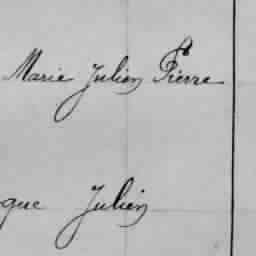 Marie Julien Pierre
gue Julien